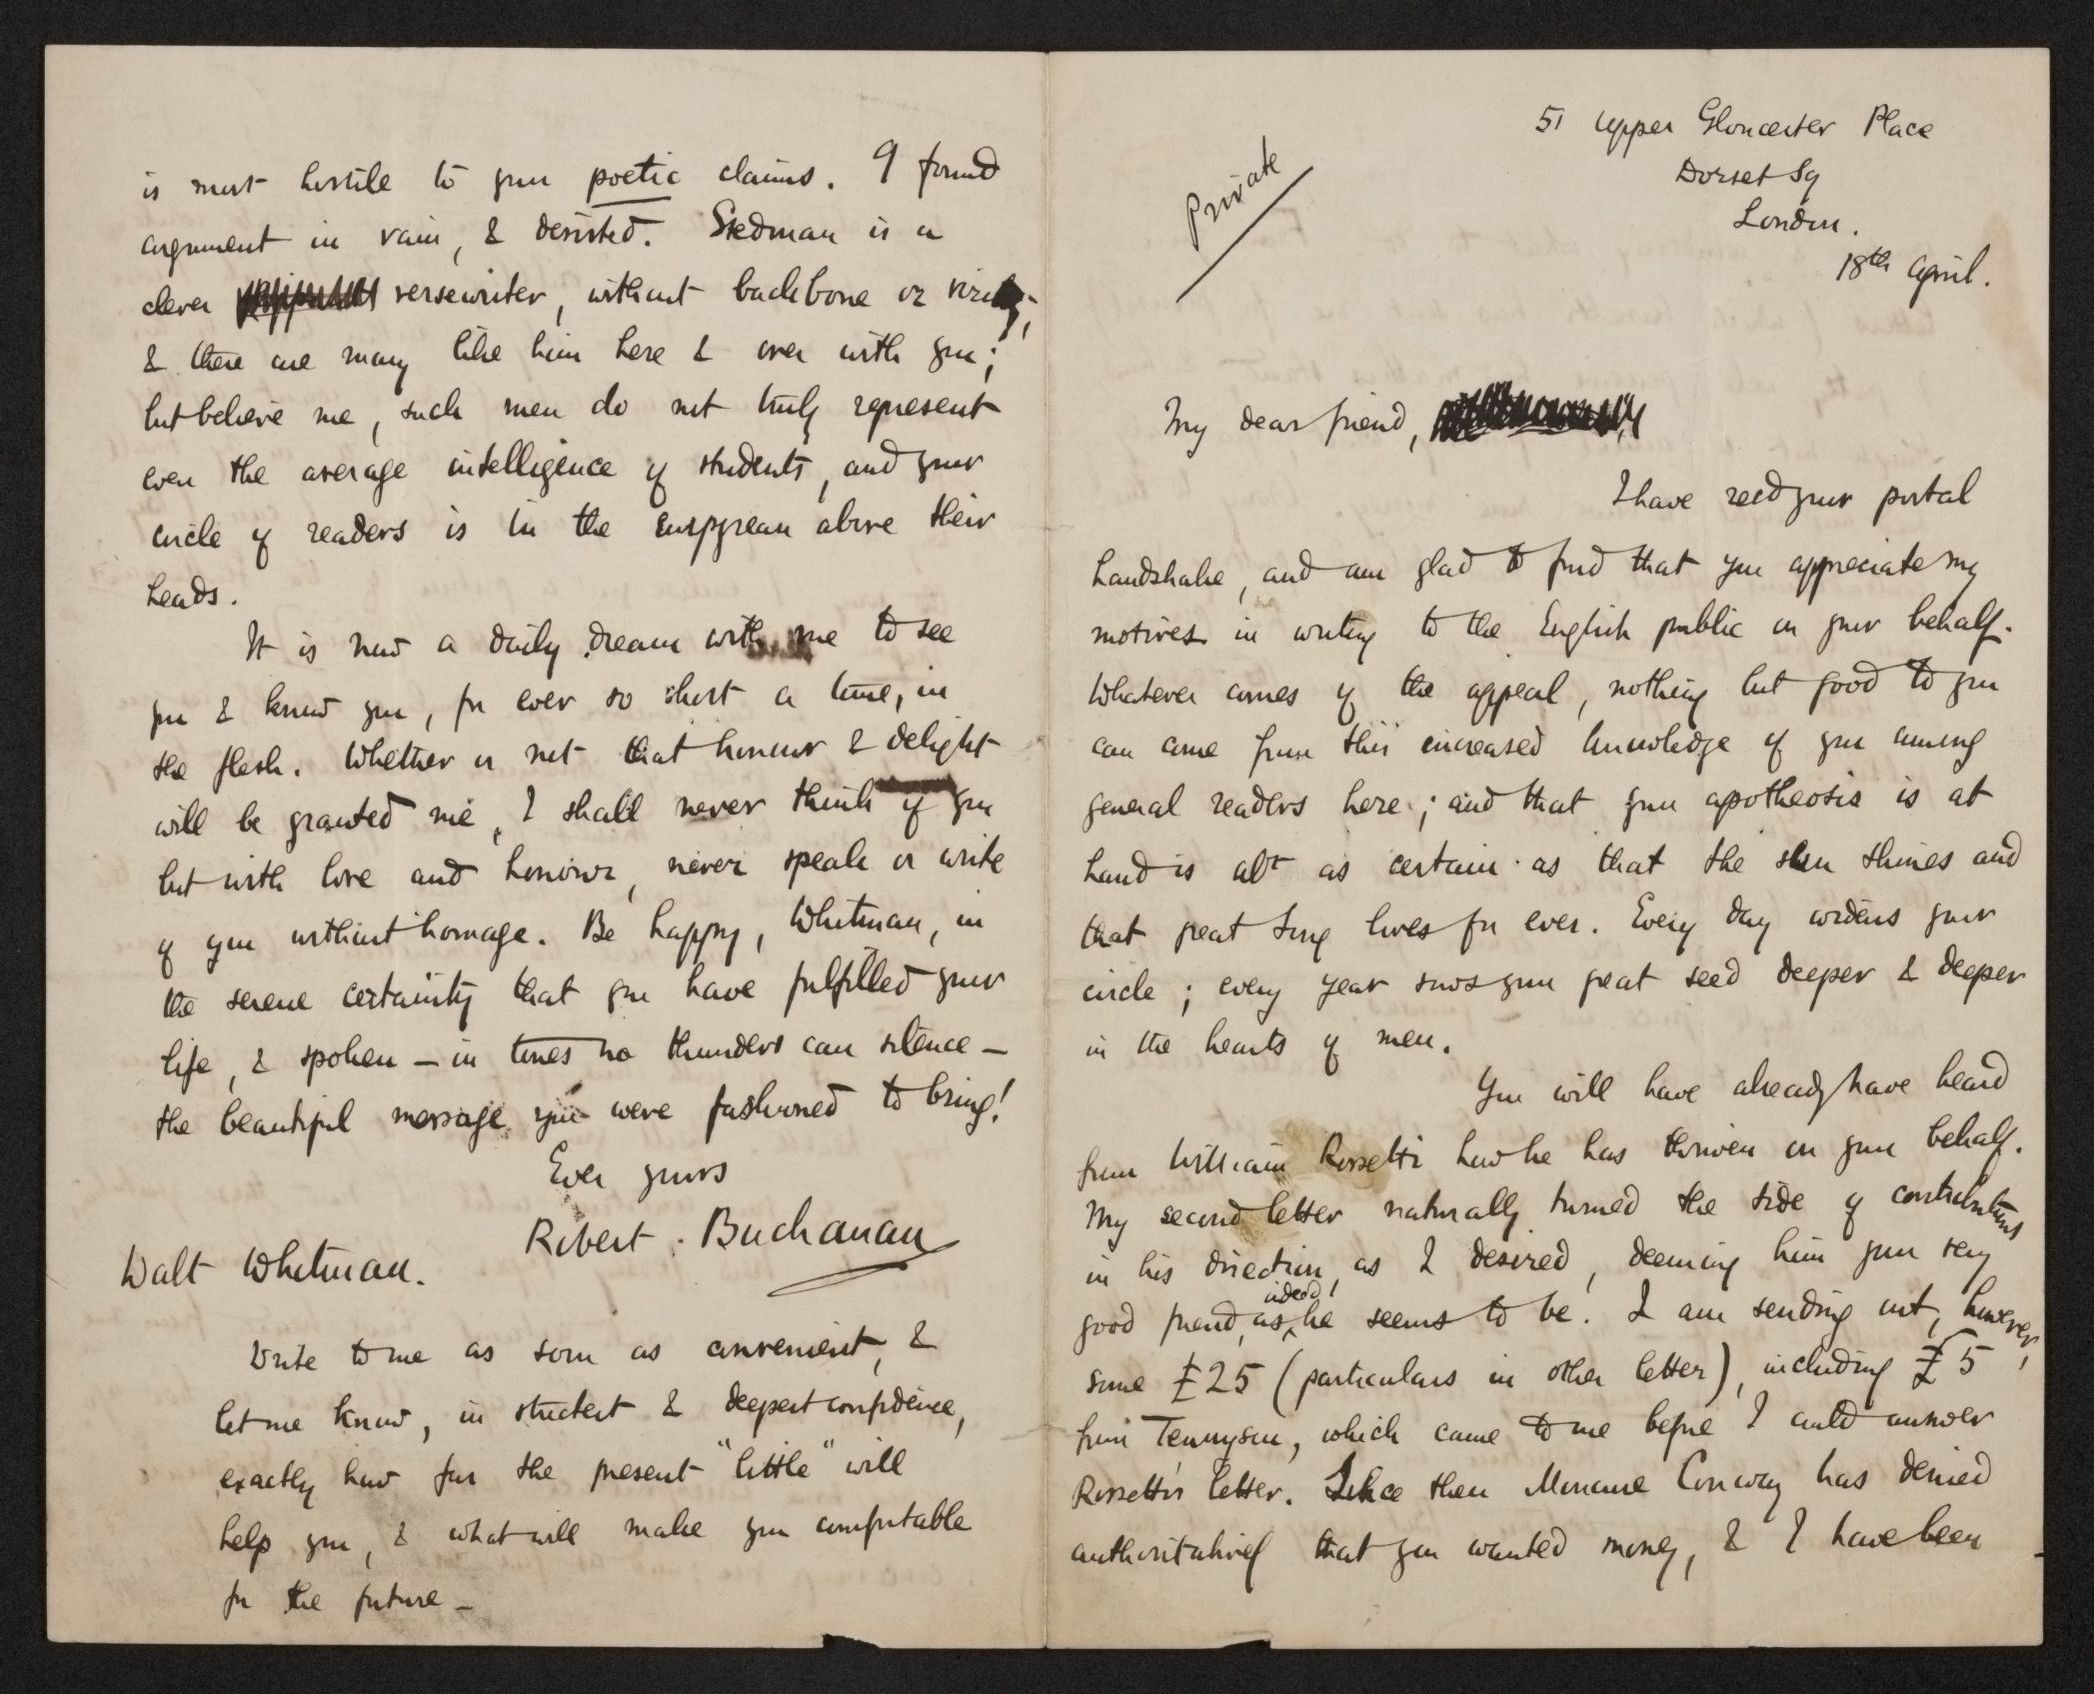 Private
51 Upper Gloucester Place
Dorset Sq
London.
18th April.
My dear friend,
I have recd your postal
handshake, and am glad to find that you appreciate my
motives in writing to the English public on your behalf.
Whatever comes of the appeal, nothing but good to you
can come from this increased knowledge of you among
general readers here; and that your apotheosis is at
hand is abt as certain as that the sun shines and
that great Song lives for ever. Every day widens your
circle; every year sows your great seed deeper & deeper
in the hearts of men.
You will have already have heard
from William Rossetti how he has thriven on your behalf.
My second letter naturally turned the tide of contributions
in his direction, as I desired, deeming him your very
good friend, as indeed, he seems to be. I am sending out, however,
some £25 (particulars in other letter), including £5
from Tennyson, which came to me before I could answer
Rossetti's letter. Since then Moncure Conway has denied
authoritatively that you wanted money, & I have been
is most hostile to your poetic claims. I found
argument in vain, & desisted. Stedman is a
clever versewriter, without backbone or virility,
& there are many like him here & over with you;
but believe me, such men do not truly represent
even the average intelligence of students, and your
circle of readers is in the Empyrean above their
heads.
It is now a daily dream with me to see
you & know you, for ever so short a time, in
the flesh. Whether or not that honour & delight
will be granted me, I shall never think of you
but with love and honour, never speak or write
of you without homage. Be happy, Whitman, in
the serene certainty that you have fulfilled your
life, & spoken – in tones no thunders can silence –
the beautiful message you were fashioned to bring!
Ever yours
Robert Buchanan
Walt Whitman.
Write to me as soon as convenient, &
let me know, in strictest & deepest confidence,
exactly how far the present "little" will
help you, & what will make you comfortable
for the future –